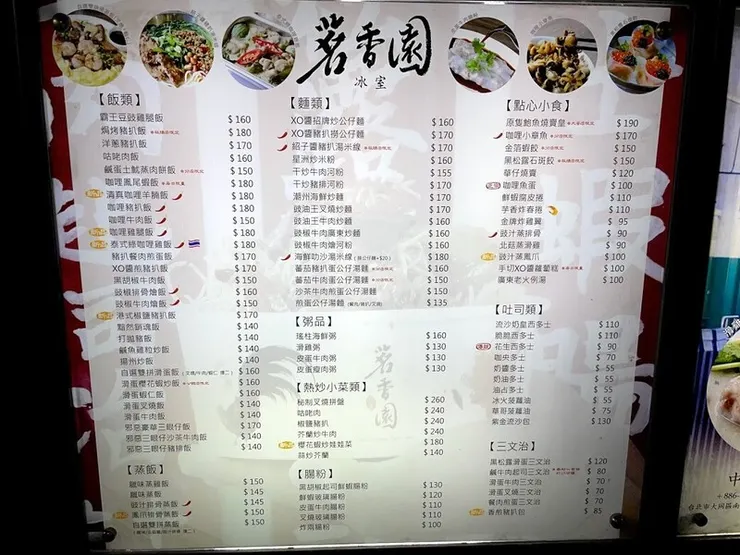 茗香園
冰室
【飯類】
霸王豆豉雞腿飯 $ 160
焗烤豬扒飯 $ 180
洋蔥豬扒飯 $ 170
咕咾肉飯 $ 160
鹹蛋土魷蒸肉餅飯 $ 150
咖哩鳳尾蝦飯 $ 180
清真咖哩羊腩飯 $ 180
咖哩豬扒飯 $ 180
咖哩牛肉飯 $ 150
咖哩雞腿飯 $ 180
泰式綠咖哩雞飯 $ 180
豬扒餐肉煎蛋飯
XO醬煎豬扒飯
黑胡椒牛肉飯 $ 150
豉椒排骨燴飯 $ 150
豉椒牛肉燴飯 $ 150
港式椒鹽豬扒飯
黯然銷魂飯 $ 140
打拋豬飯 $ 140
鹹魚雞粒炒飯 $ 140
揚州炒飯 $ 140
自選雙拼滑蛋飯 $ 160
滑蛋櫻花蝦炒飯 $ 160
滑蛋蝦仁飯 $ 160
滑蛋叉燒飯 $ 140
滑蛋牛肉飯 $ 140
邪惡豪華三眼仔飯 $ 170
邪惡三眼仔沙茶牛肉飯
邪惡三眼仔豬排飯 $ 140
【蒸飯】
臘味蒸雞飯 $ 150
臘味蒸飯 $ 145
豉汁排骨蒸飯 $ 145
鳳爪排骨蒸飯
自選雙拼蒸飯 $ 150
【麵類】
XO醬招牌炒公仔麵 $ 160
XO醬豬扒撈公仔麵 $ 170
紹子醬豬扒湯米線 $ 170
星洲炒米粉 $ 160
干炒牛肉河粉 $ 155
干炒豬排河粉 $ 170
潮州海鮮炒麵 $ 170
豉油王叉燒炒麵 $ 160
豉油王牛肉炒麵 $ 160
豉椒牛肉廣東炒麵 $ 160
豉椒牛肉燴河粉 $ 160
海鮮叻沙湯米線 (換公仔麵+$20) $ 180
蕃茄豬扒蛋公仔湯麵 $ 160
蕃茄牛肉蛋公仔湯麵 $ 150
沙茶牛肉煎蛋公仔湯麵 $ 150
煎蛋公仔湯麵 (餐肉/豬扒/叉燒) $ 135
【粥品】
瑤柱海鮮粥 $ 160
滑雞粥 $ 130
皮蛋牛肉粥 $ 130
皮蛋瘦肉粥 $ 130
【熱炒小菜類】
秘制叉燒拼盤 $ 260
咕咾肉 $ 240
椒鹽豬扒 $ 240
芥蘭炒牛肉 $ 240
櫻花蝦炒娃娃菜 $ 180
蒜炒芥蘭 $ 140
【腸粉】
黑胡椒起司鮮蝦腸粉 $ 130
鮮蝦玻璃腸粉 $ 120
皮蛋牛肉腸粉 $ 110
叉燒玻璃腸粉 $ 110
炸兩腸粉 $ 100
【點心小食】
原隻鮑魚燒賣皇 $ 190
咖哩小章魚 $ 170
金箔蝦餃 $ 150
黑松露石斑餃 $ 150
華仔燒賣 $ 120
咖哩魚蛋 $ 100
鮮蝦腐皮捲 $ 110
芋香炸春捲 $ 110
金牌炸雞翼 $ 95
豉汁蒸排骨 $ 90
北菇蒸滑雞 $ 90
豉汁蒸鳳爪 $ 100
手切XO醬蘿蔔糕 $ 100
廣東老火例湯 $ 100
【吐司類】
流沙奶皇西多士 $ 110
脆脆西多士 $ 110
花生西多士 $ 90
咖央多士 $ 70
奶醬多士 $ 60
奶油多士 $ 55
油占多士 $ 60
冰火菠蘿油 $ 60
華哥菠蘿油 $ 75
紫金流沙包 $ 130
【三文治】
黑松露滑蛋三文治 $ 120
鹹牛肉起司三文治 $ 80
滑蛋牛肉三文治 $ 70
滑蛋叉燒三文治 $ 70
餐肉煎蛋三文治 $ 70
香煎豬扒包 $ 85
中
+886-